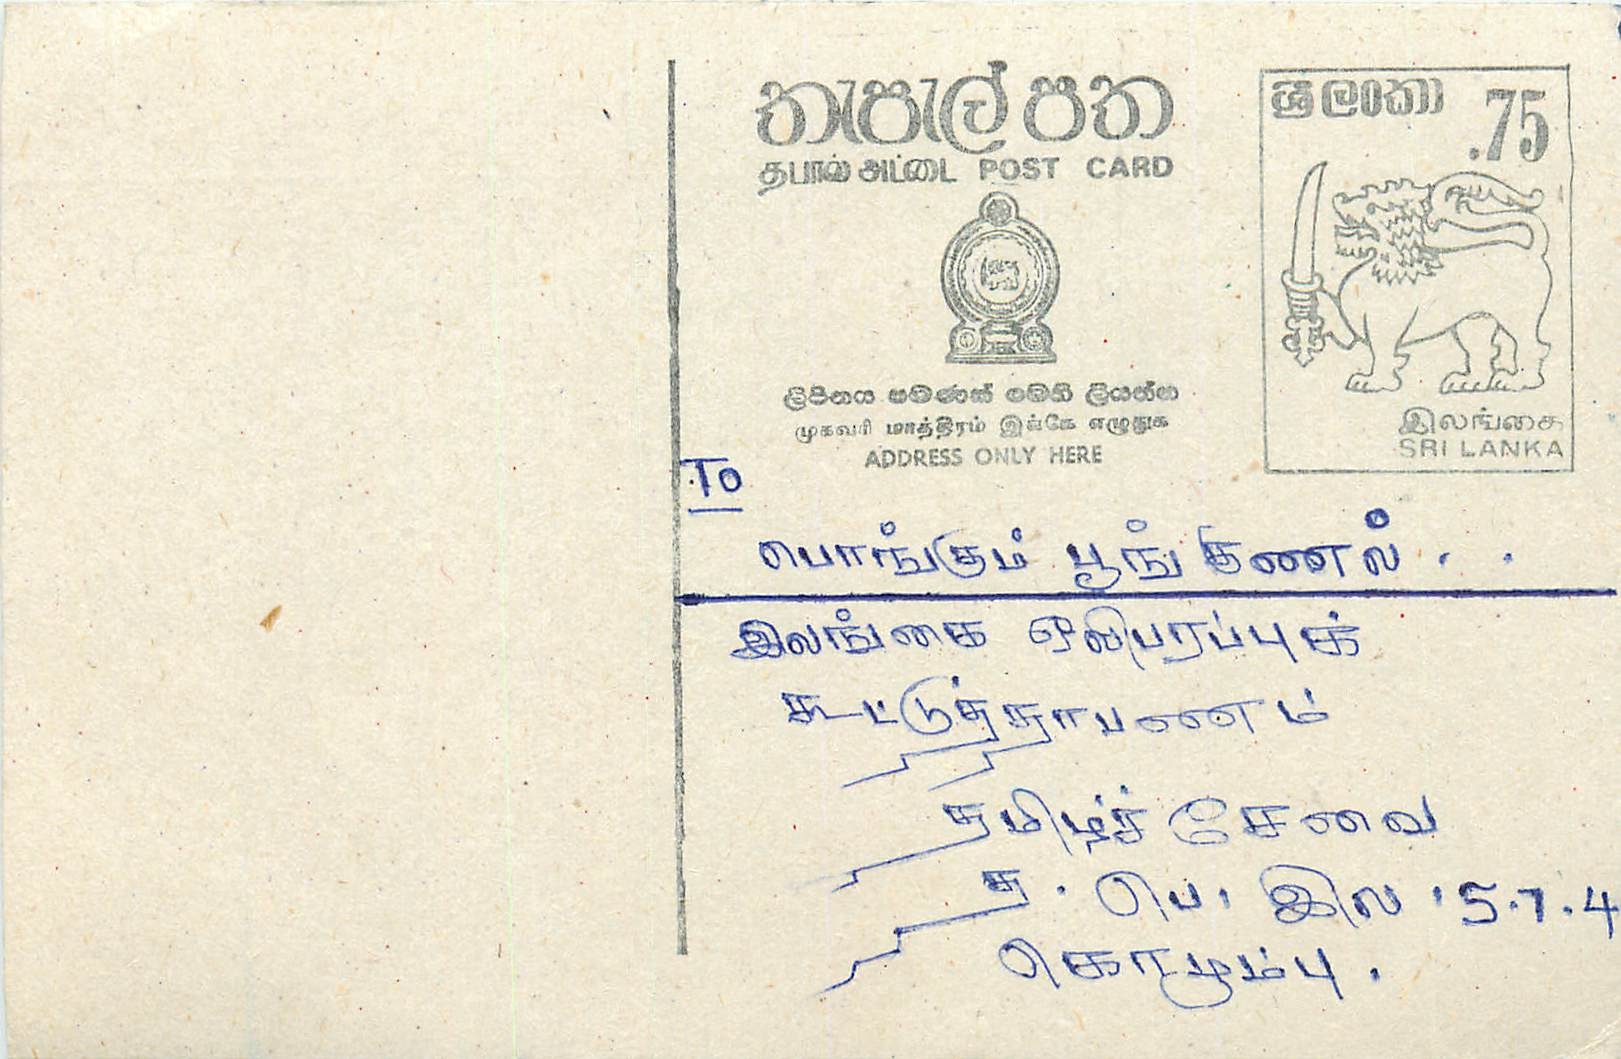 තැපැල් පත
தபால் அட்டை POST CARD
ශ්‍රී ලංකා .75
ලිපිනය පමණක් මෙහි ලියන්න
முகவரி மாத்திரம் இங்கே எழுதுக
ADDRESS ONLY HERE
இலங்கை
SRI LANKA
To
பொங்கும் பூங்குணல் . .
இலங்கை ஒலிபரப்புக்
கூட்டுத்தாபணம்
தமிழ்ச் சேவை
த. பெ. இல .5.7.4
கொழும்பு.